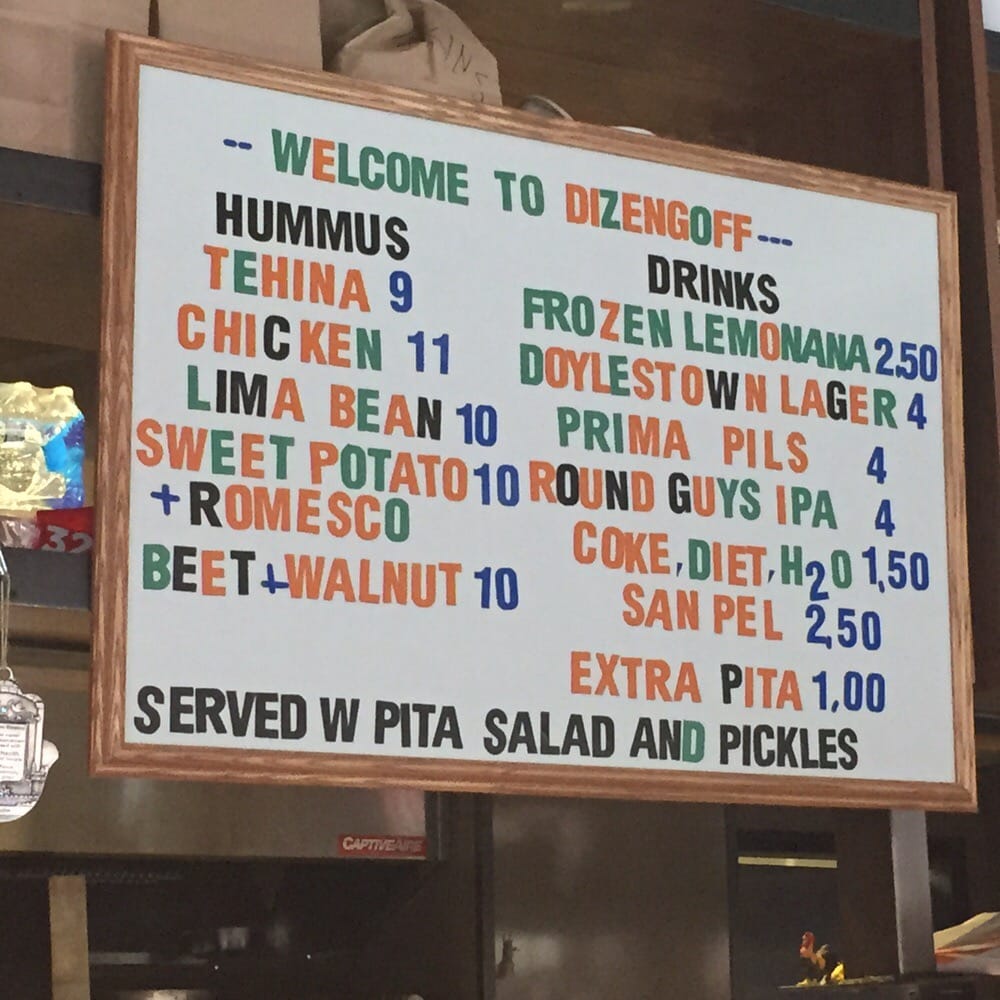 -- WELCOME TO DIZENGOFF---
HUMMUS
TEHINA 9
CHICKEN 11
LIMA BEAN 10
SWEET POTATO 10
+ROMESCO
BEET+WALNUT 10
DRINKS
FROZEN LEMONANA 2,50
DOYLESTOWN LAGER 4
PRIMA PILS 4
ROUND GUYS IPA 4
COKE, DIET, H2O 1,50
SAN PEL 2,50
EXTRA PITA 1,00
SERVED W PITA SALAD AND PICKLES
CAPTIVEAIRE
32